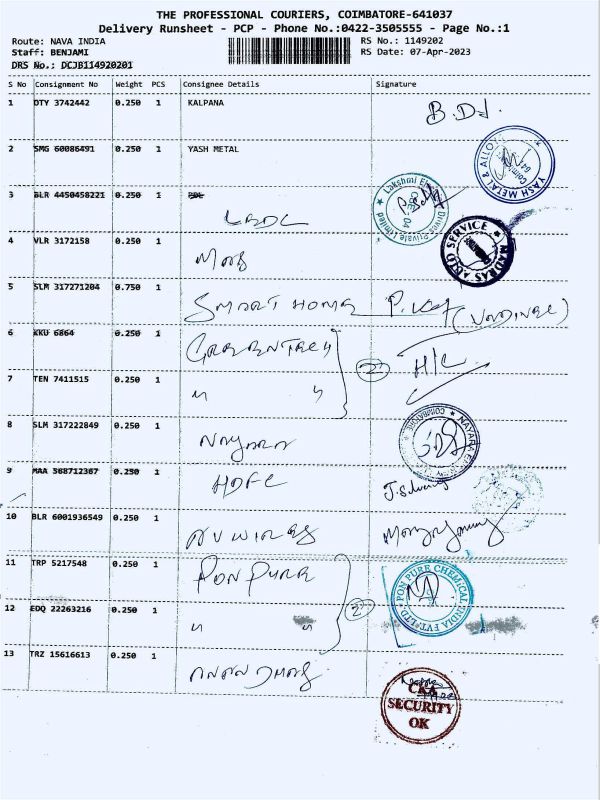 THE PROFESSIONAL COURIERS, COIMBATORE-641037
Delivery Runsheet - PCP - Phone No.:0422-3505555 - Page No.:1
Route: NAVA INDIA
RS No.: 1149202
Staff: BENJAMI
RS Date: 07-Apr-2023
DRS No.: DCJB114920201
S No Consignment No Weight PCS Consignee Details Signature
1 DTY 3742442 0.250 1 KALPANA
B.D.J.
2 SMG 60086491 0.250 1 YASH METAL
YASH METAL & ALLOY
3 BLR 4450458221 0.250 1
LBDL
Lakshmi Drives Private Limited
CBE - 04
4 VLR 3172158 0.250 1
MADRAS AUTO SERVICE
5 SLM 317271204 0.750 1
SMART HOME
6 KKU 6864 0.250 1 GREENTECH
2
H/C
7 TEN 7411515 0.250 1 " "
8 SLM 317222849 0.250 1
NAYARA
COIMBATORE
9 MAA 368712367 0.250 1 HDFC
10 BLR 6001936549 0.250 1
11 TRP 5217548 0.250 1 PON PURE
PON PURE CHEMICAL INDIA PVT. LTD
2
12 EDQ 22263216 0.250 1 " "
13 TRZ 15616613 0.250 1
SECURITY
OK